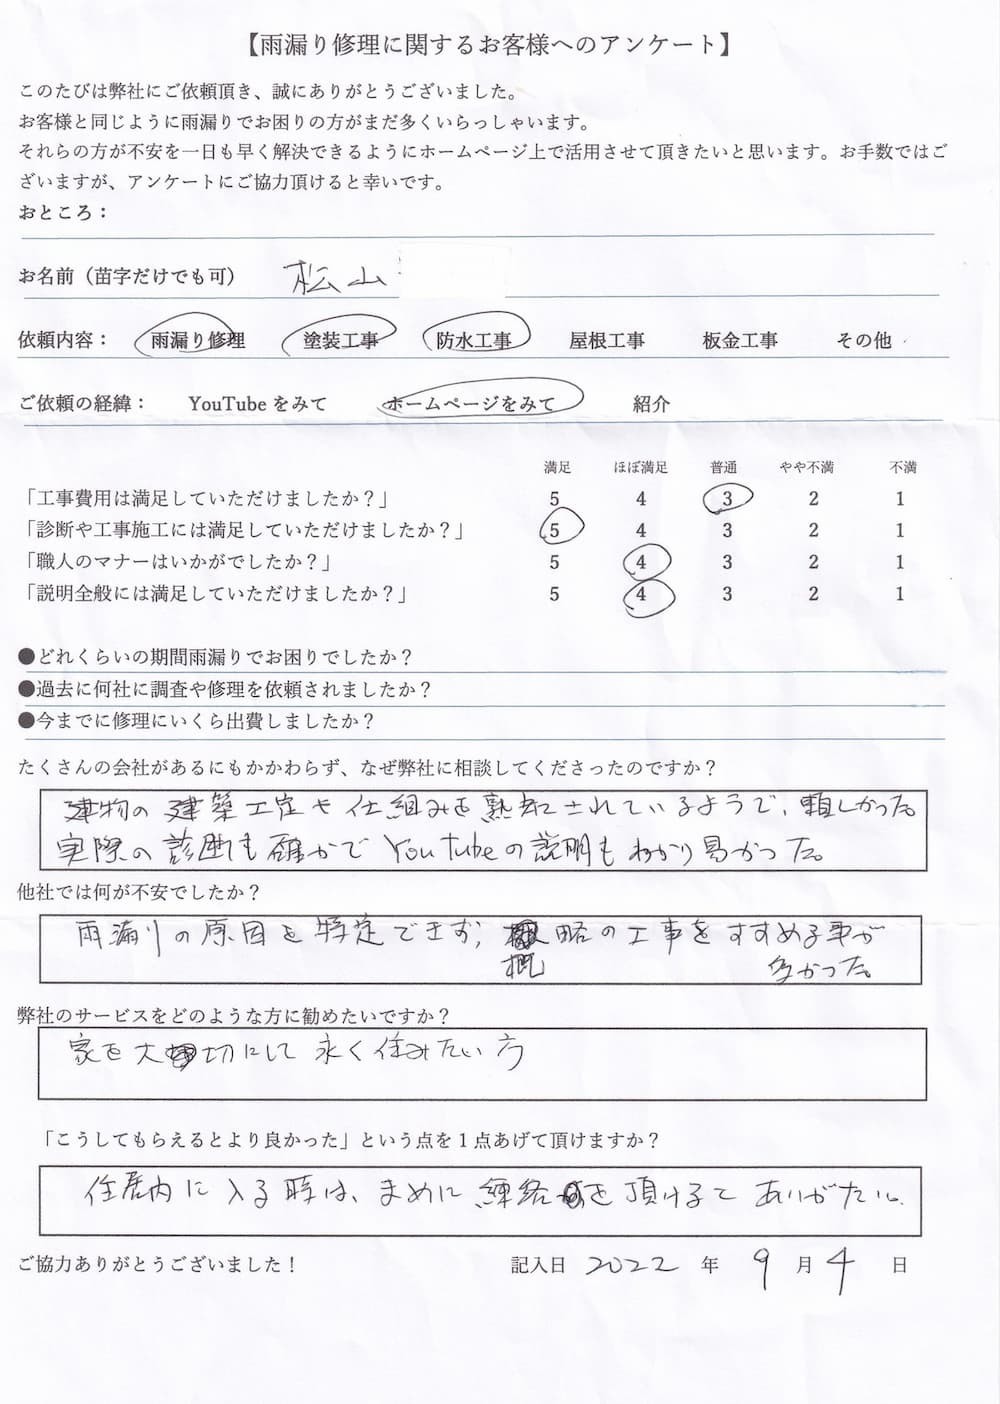 【雨漏り修理に関するお客様へのアンケート】
このたびは弊社にご依頼頂き、誠にありがとうございました。
お客様と同じように雨漏りでお困りの方がまだ多くいらっしゃいます。
それらの方が不安を一日も早く解決できるようにホームページ上で活用させて頂きたいと思います。お手数ではご
ざいますが、アンケートにご協力頂けると幸いです。
おところ：
お名前（苗字だけでも可） 松山
依頼内容： 雨漏り修理 塗装工事 防水工事 屋根工事 板金工事 その他
ご依頼の経緯： YouTubeをみて ホームページをみて 紹介
満足 ほぼ満足 普通 やや不満 不満
「工事費用は満足していただけましたか？」 5 4 3 2 1
「診断や工事施工には満足していただけましたか？」 5 4 3 2 1
「職人のマナーはいかがでしたか？」 5 4 3 2 1
「説明全般には満足していただけましたか？」 5 4 3 2 1
●どれくらいの期間雨漏りでお困りでしたか？
●過去に何社に調査や修理を依頼されましたか？
●今までに修理にいくら出費しましたか？
たくさんの会社があるにもかかわらず、なぜ弊社に相談してくださったのですか？
建物の建築工定や仕組みを熟知されているようで、頼しかった
実際の診断も確かでYouTubeの説明もわかり易かった。
他社では何が不安でしたか？
雨漏りの原因を特定できず、概略の工事をすすめる事が
多かった。
弊社のサービスをどのような方に勧めたいですか？
家を大切にして永く住みたい方
「こうしてもらえるとより良かった」という点を１点あげて頂けますか？
住居内に入る時は、まめに連絡を頂けるとありがたい。
ご協力ありがとうございました！ 記入日 2022 年 9 月 4 日